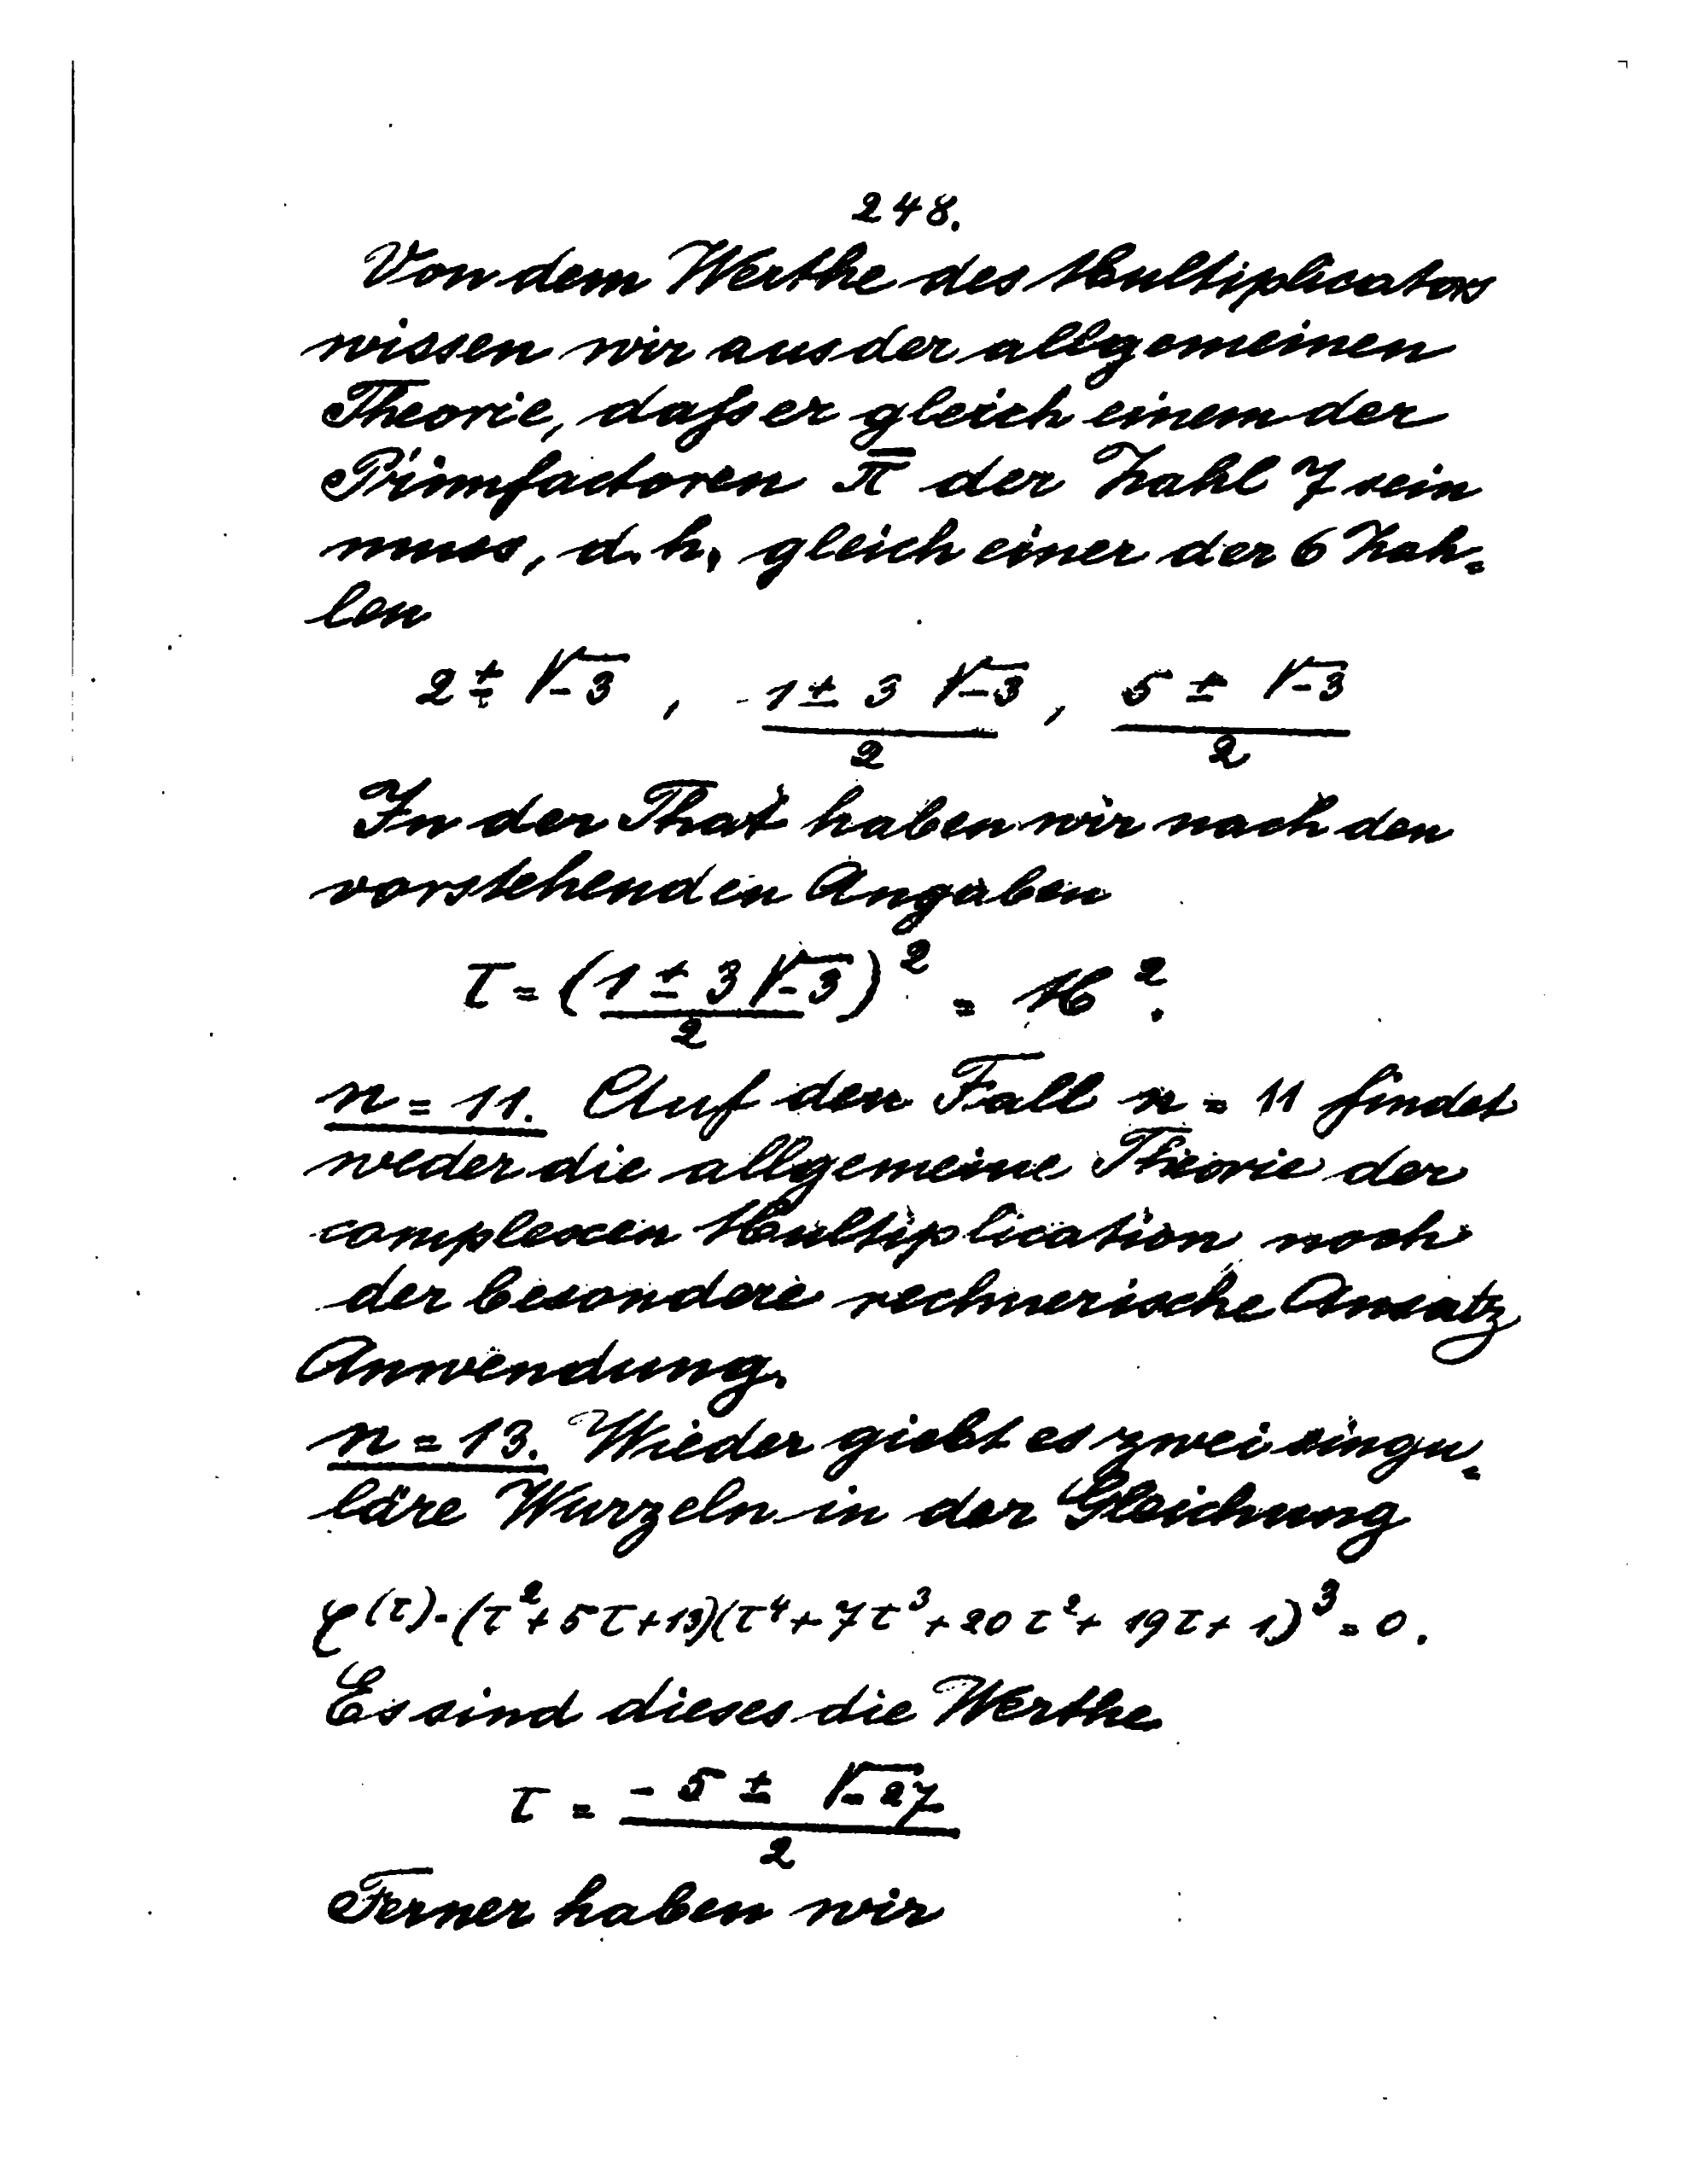 248.
Von dem Werthe des Multiplicators
wissen wir aus der allgemeinen
Theorie, dass er gleich einem der
Primfactoren π̅ der Zahl 7 sein
muss, d. h. gleich einer der 6 Zah=
len
2 ± √-3 , (-1 ± 3 √-3)/2 , (5 ± √-3)/2
In der That haben wir nach den
vorstehenden Angaben
τ = ((1 ± 3√-3)/2)² = M².
n = 11. Auf den Fall n = 11 findet
weder die allgemeine Theorie der
complexen Multiplication, noch
der besondere rechnerische Ansatz
Anwendung.
n = 13. Wieder giebt es zwei singu=
läre Wurzeln in der Gleichung
φ(τ) = (τ² + 5τ + 13)(τ⁴ + 7τ³ + 20τ² + 19τ + 1)³ = 0.
Es sind dieses die Werthe
τ = (-5 ± √-27)/2
Ferner haben wir